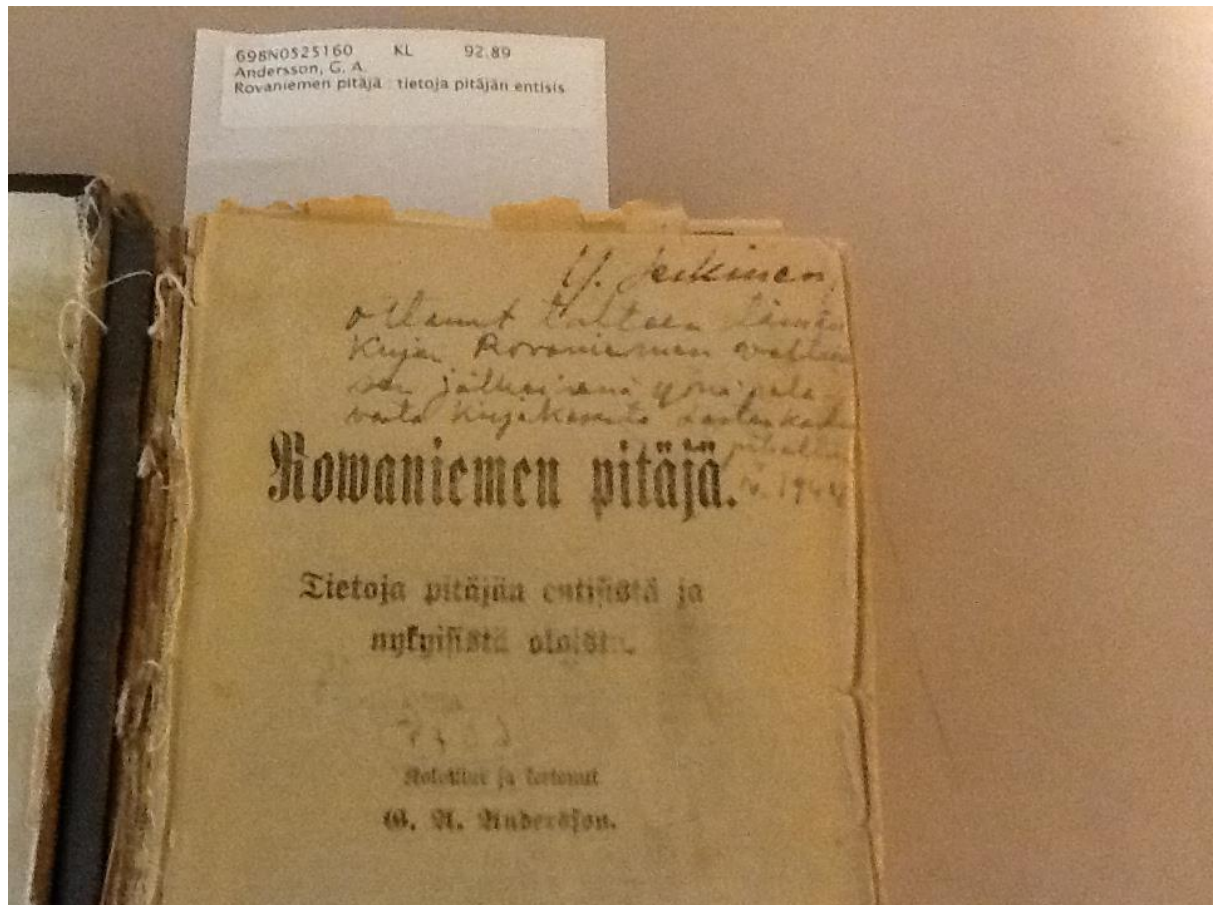 698N0525160 KL 92.89
Andersson, G. A.
Rovaniemen pitäjä : tietoja pitäjän entisis
Y. Jenkinen,
ottanut talteen tämän
kirjan Rovaniemen
sen jälkeisenä yönä pala-
vasta
Rowaniemen pitäjä.
1944
Tietoja pitäjän entisistä ja
nykyisistä oloista.
ja kertonut
G. A. Andersson.